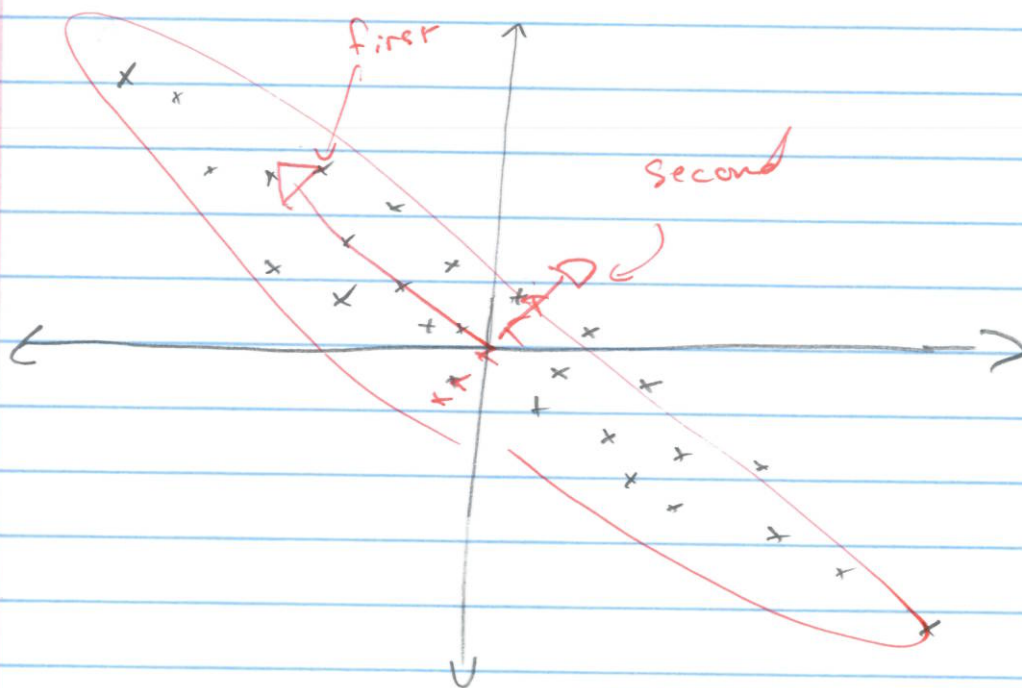 first
second